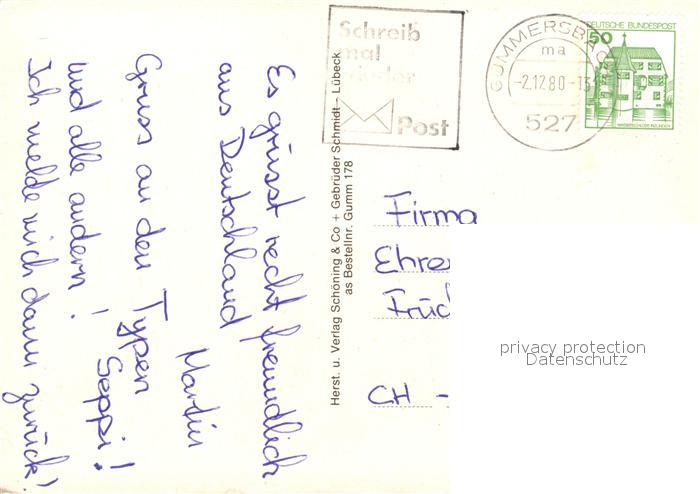 Es grüsst recht freundlich
aus Deutschland
Martin
Gruss an den Typen
Seppi!
und alle andern!
Ich melde mich dann zurück!
Schreib
mal
wieder
Post
GUMMERSBAC
ma
-2.12.80-13
527
DEUTSCHE BUNDESPOST
50
WASSERSCHLOSS INZLINGEN
Herst. u. Verlag Schöning & Co + Gebrüder Schmidt – Lübeck
as Bestellnr. Gumm 178
Firma
Ehre
Früd
CH -
privacy protection
Datenschutz